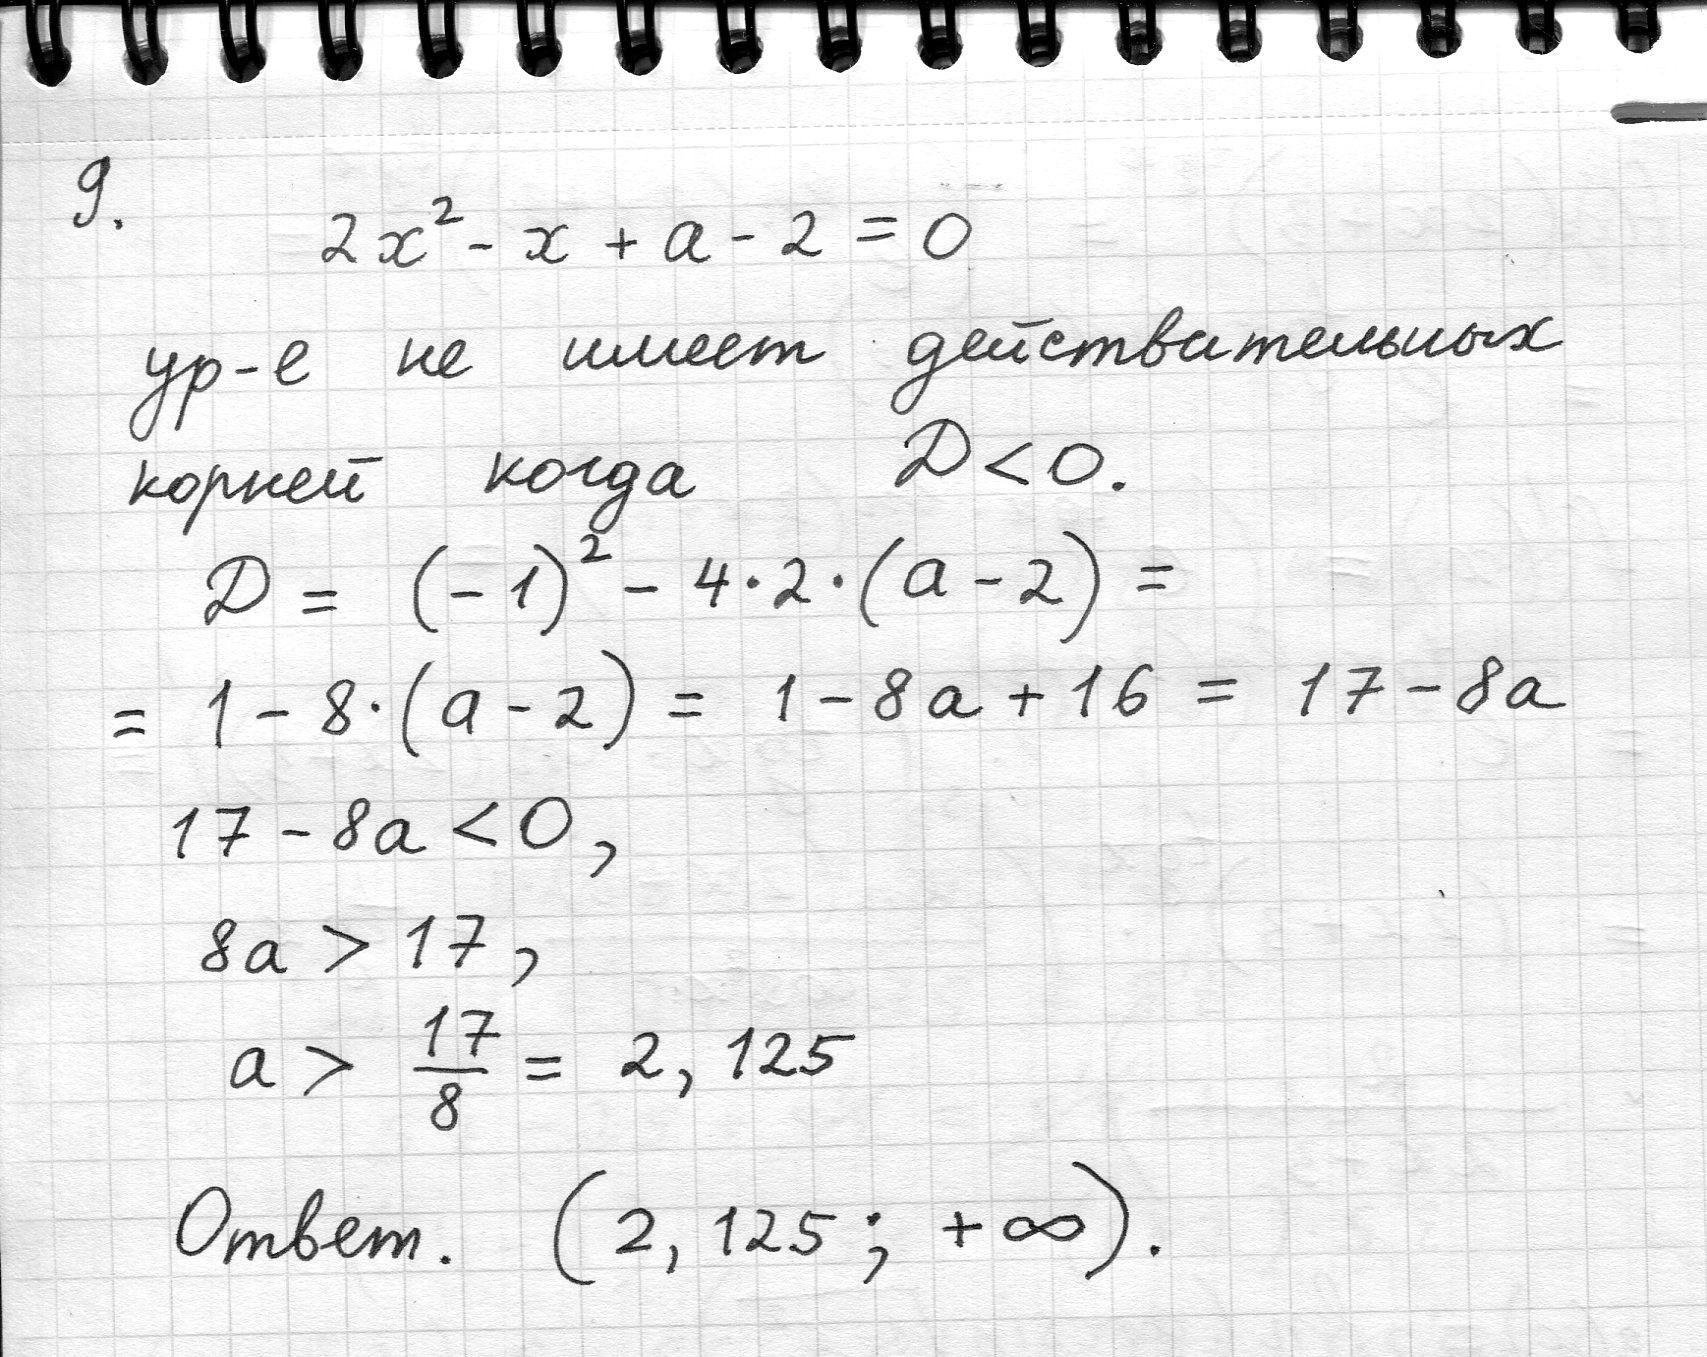 9.
2x² - x + a - 2 = 0
ур-е не имеет действительных
корней когда D < 0.
D = (-1)² - 4·2·(a - 2) =
= 1 - 8·(a - 2) = 1 - 8a + 16 = 17 - 8a
17 - 8a < 0,
8a > 17,
a > 17/8 = 2,125
Ответ. (2,125; +∞).